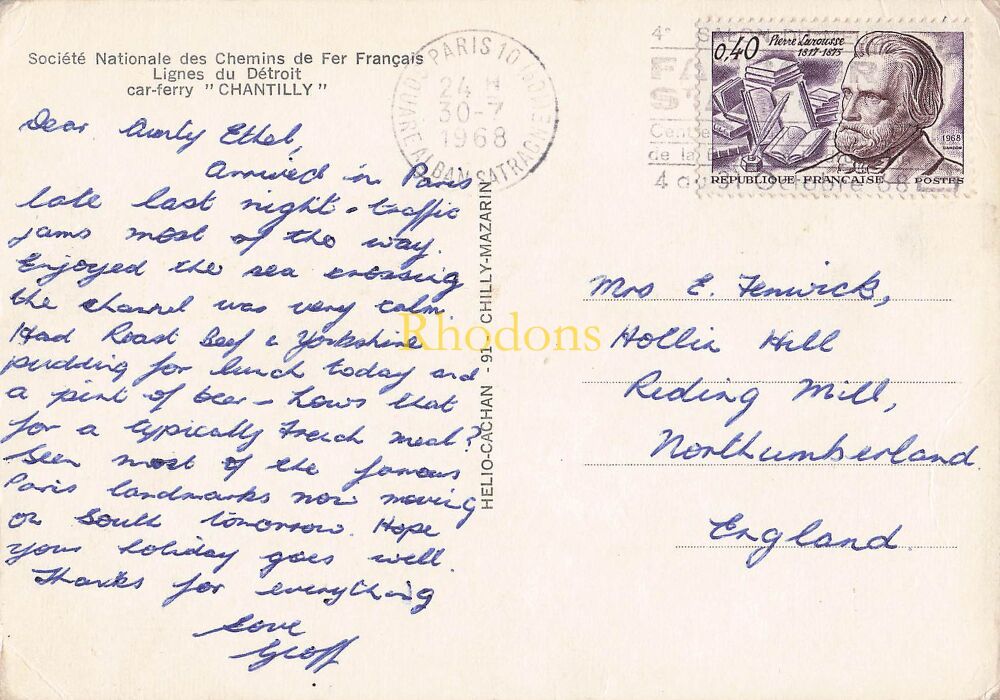 Société Nationale des Chemins de Fer Français
Lignes du Détroit
car-ferry "CHANTILLY"
Dear Aunty Ethel,
Arrived in Paris
late last night - traffic
jams most of the way.
Enjoyed the sea crossing
the channel was very calm.
Had Roast Beef & Yorkshire
pudding for lunch today and
a pint of beer - hows that
for a typically French meal?
Seen most of the famous
Paris landmarks now moving
on South tomorrow. Hope
your holiday goes well.
Thanks for everything
Love
Geoff
HELIO-CACHAN - 91 CHILLY-MAZARIN
PARIS 10
24 H
30-7
1968
4e
de la
4 au Octobre 68
0,40
Pierre Larousse
1817-1875
1968
RÉPUBLIQUE FRANÇAISE POSTES
Mrs E. Fenwick,
Hollin Hill
Riding Mill,
Northumberland
England.
Rhodons